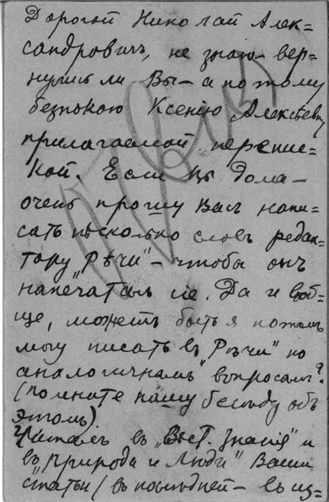 Дорогой Николай Алек=
сандровичъ, не знаю вер=
нулись ли Вы – а потому
безпокою Ксенію Алексѣевну
прилагаемой перепис=
кой. Если Вы дома –
очень прошу Васъ напи=
сать нѣсколько словъ редак=
тору „Рѣчи" – чтобы онъ
напечаталъ ее. Да и вооб=
ще, можетъ быть я потомъ
могу писать въ „Рѣчи" по
аналогичнымъ вопросамъ?
(помните нашу бесѣду объ
этомъ).
Читалъ въ „Вѣст. Знанія" и
въ „Природа и Люди" Ваши
статьи (въ послѣдней – въ из=